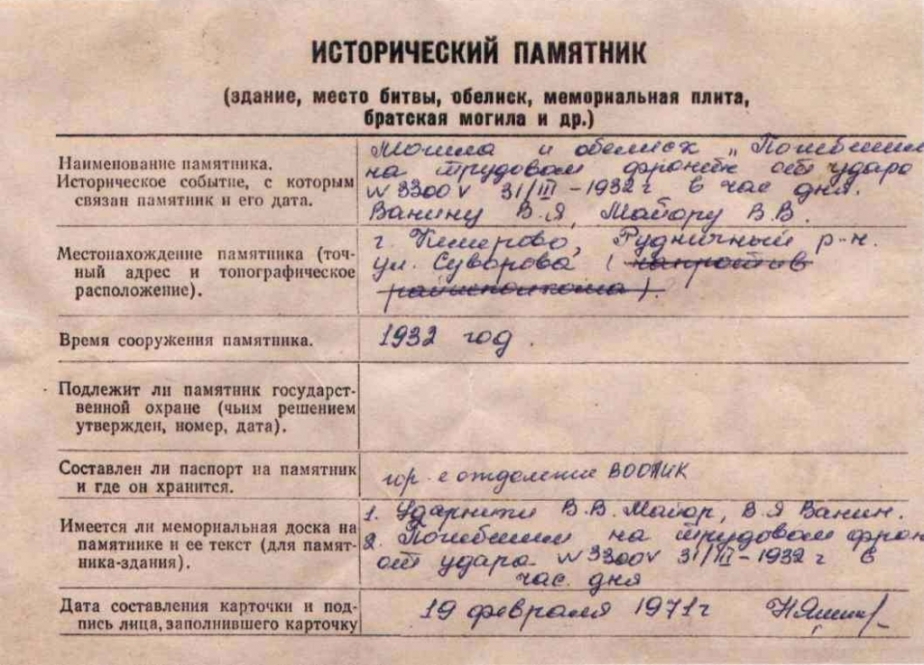 ИСТОРИЧЕСКИЙ ПАМЯТНИК
(здание, место битвы, обелиск, мемориальная плита,
братская могила и др.)
Наименование памятника.
Историческое событие, с которым
связан памятник и его дата.
Могила и обелиск „Погибшим
на трудовом фронте от удара
W 3300 V 31/III - 1932 г в час дня.
Ванину В.Я, Майору В.В.
Местонахождение памятника (точ-
ный адрес и топографическое
расположение).
г. Кемерово, Рудничный р-н.
ул. Суворова (напротив
райисполкома).
Время сооружения памятника.
1932 год.
Подлежит ли памятник государст-
венной охране (чьим решением
утвержден, номер, дата).
Составлен ли паспорт на памятник
и где он хранится.
гор. отделение ВООПИК
Имеется ли мемориальная доска на
памятнике и ее текст (для памят-
ника-здания).
1. Ударники В.В. Майор, В.Я Ванин.
2. Погибшим на трудовом фрон
от удара W 3300 V 31/III - 1932 г в
час дня
Дата составления карточки и под-
пись лица, заполнившего карточку
19 февраля 1971 г